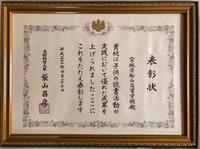 表彰状
宮城県松山高等学校殿
貴校は子供の読書活動の
実践において優れた成果を
上げられましたここに
これをたたえ表彰します
平成三十一年四月二十三日
文部科学大臣
柴山昌彦